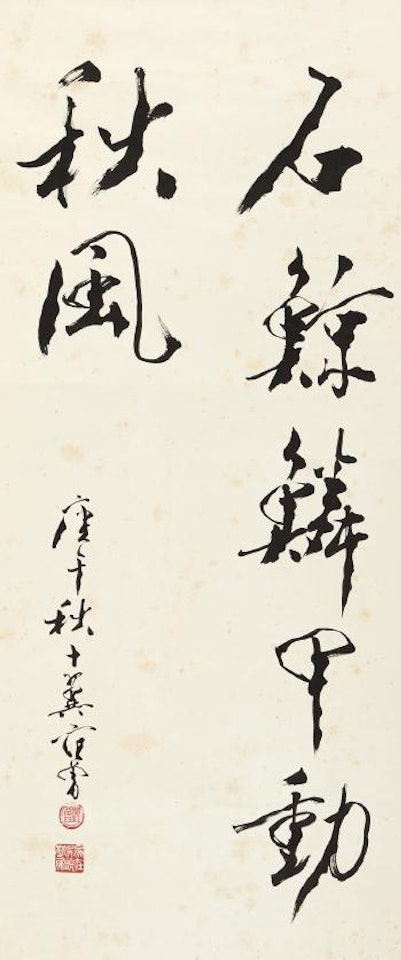 石鯨鱗甲動
秋風
庚午秋十翼范曾